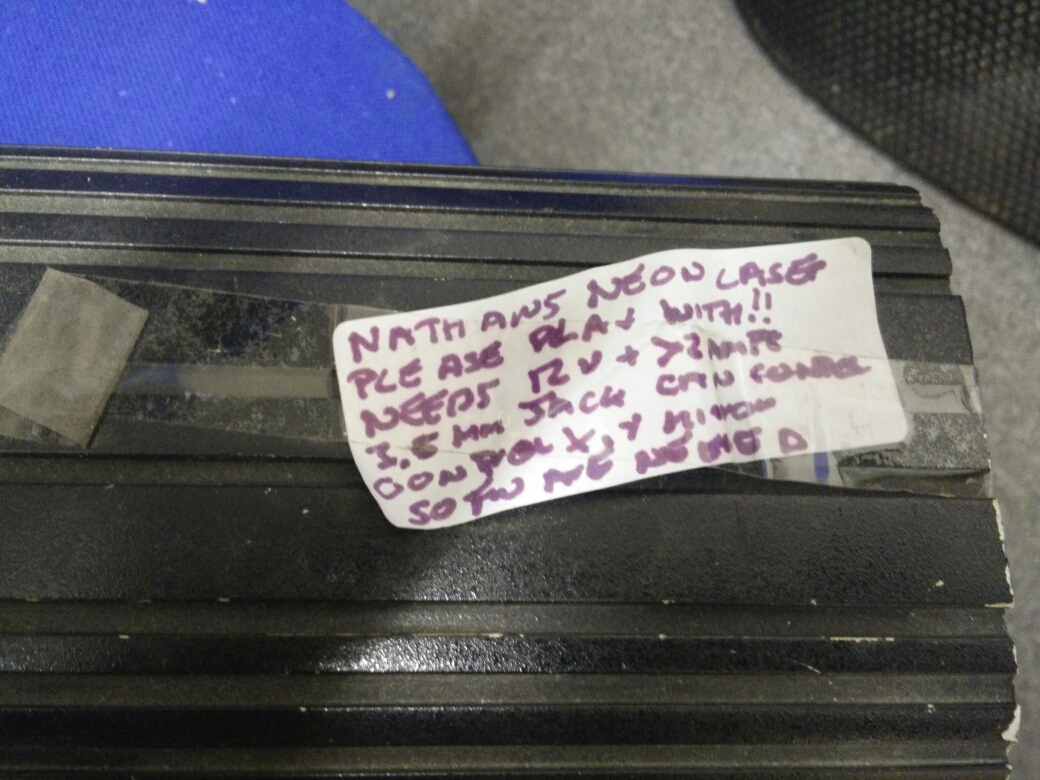 NATHANS NEON LASER
PLEASE PLAY WITH!!
NEEDS 12V + >2AMPS
3.5MM JACK CAN CONTROL
CONTROL X,Y MIRROR
NEEDED